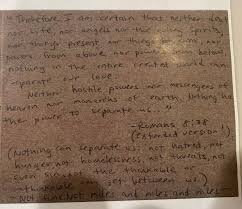 Therefore I am certain that neither death
nor life, nor angels nor the ruling spirits,
nor things present nor things to come, nor
powers from above nor power from below
nothing in the entire created world can
separate our love.
Neither hostile powers nor messengers of
heaven nor monarchs of earth. Nothing has
the power to separate us.
- Romans 8:38
(Extended version!)
(Nothing can separate us: not hatred, not
hunger not homelessness, not threats, not
even sin, not the thinkable or
unthinkable can get between us!)
- NOT time. NOT miles and miles and miles -